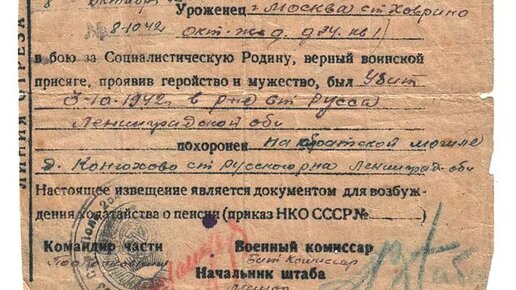 8 октября
Уроженец г. Москва ст. Ховрино
8-1042
окт. ж. д. д 84 кв 1
в бою за Социалистическую Родину, верный воинской
присяге, проявив геройство и мужество, был Убит
3-10-1942 в р-не ст Русса
Ленинградской обл
похоронен на братской могиле
д. Конюхово ст русского р-на Ленинград. обл
Настоящее извещение является документом для возбуж-
дения ходатайства о пенсии (приказ НКО СССР №
Командир части Военный комиссар
Бат Комиссар
Начальник штаба
ЛИНИЯ ОТРЕЗА